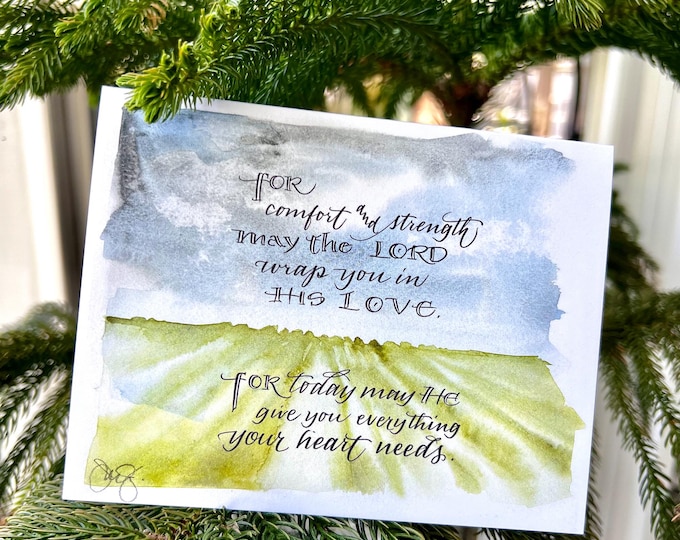 FOR
comfort and strength
may the LORD
wrap you in
HIS LOVE.
FOR today may HE
give you everything
your heart needs.